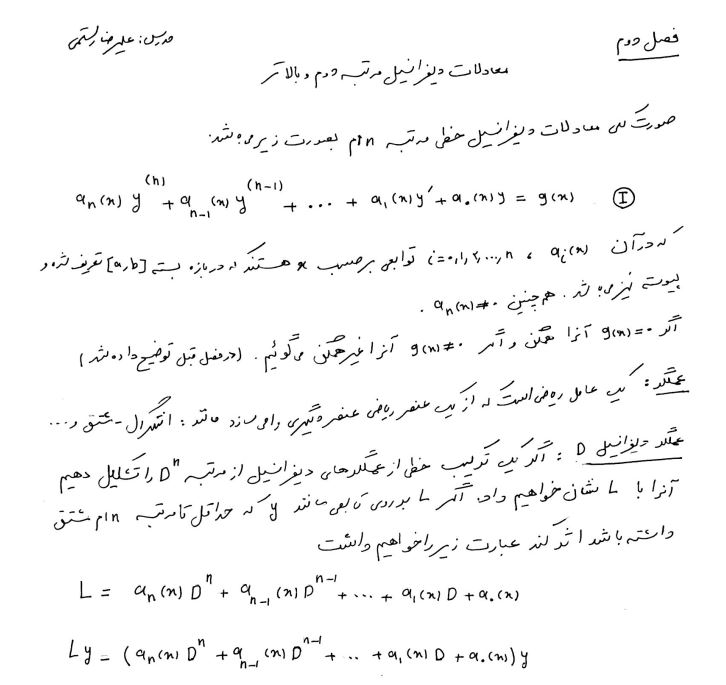 فصل دوم
مدرس: علیرضا رستمی
معادلات دیفرانسیل مرتبه دوم و بالاتر
صورت کلی معادلات دیفرانسیل خطی مرتبه nام بصورت زیر می‌باشد.
aₙ(x) y⁽ⁿ⁾ + aₙ₋₁(x) y⁽ⁿ⁻¹⁾ + ... + a₁(x) y′ + a۰(x) y = g(x) Ⓘ
که در آن aᵢ(x) ، i=۰,۱,۲,...,n توابعی برحسب x هستند که در بازه بسته [a,b] تعریف شده و
پیوسته نیز می‌باشد. همچنین aₙ(x)≠۰ .
اگر g(x)=۰ آنرا همگن و اگر g(x)≠۰ آنرا غیرهمگن می‌گوئیم. (در فصل قبل توضیح داده شد)
عملگر: یک عامل ریاضی است که از یک عنصر ریاضی عنصر دیگری را می‌سازد مانند: انتگرال - مشتق و...
عملگر دیفرانسیل D : اگر یک ترکیب خطی از عملگرهای دیفرانسیل از مرتبه Dⁿ را تشکیل دهیم
آنرا با L نشان خواهیم داد. اگر L بر روی تابعی مانند y که حداقل تا مرتبه nام مشتق
داشته باشد اثر کند عبارت زیر را خواهیم داشت
L = aₙ(x) Dⁿ + aₙ₋₁(x) Dⁿ⁻¹ + ... + a₁(x) D + a۰(x)
Ly = (aₙ(x) Dⁿ + aₙ₋₁(x) Dⁿ⁻¹ + .. + a₁(x) D + a۰(x)) y